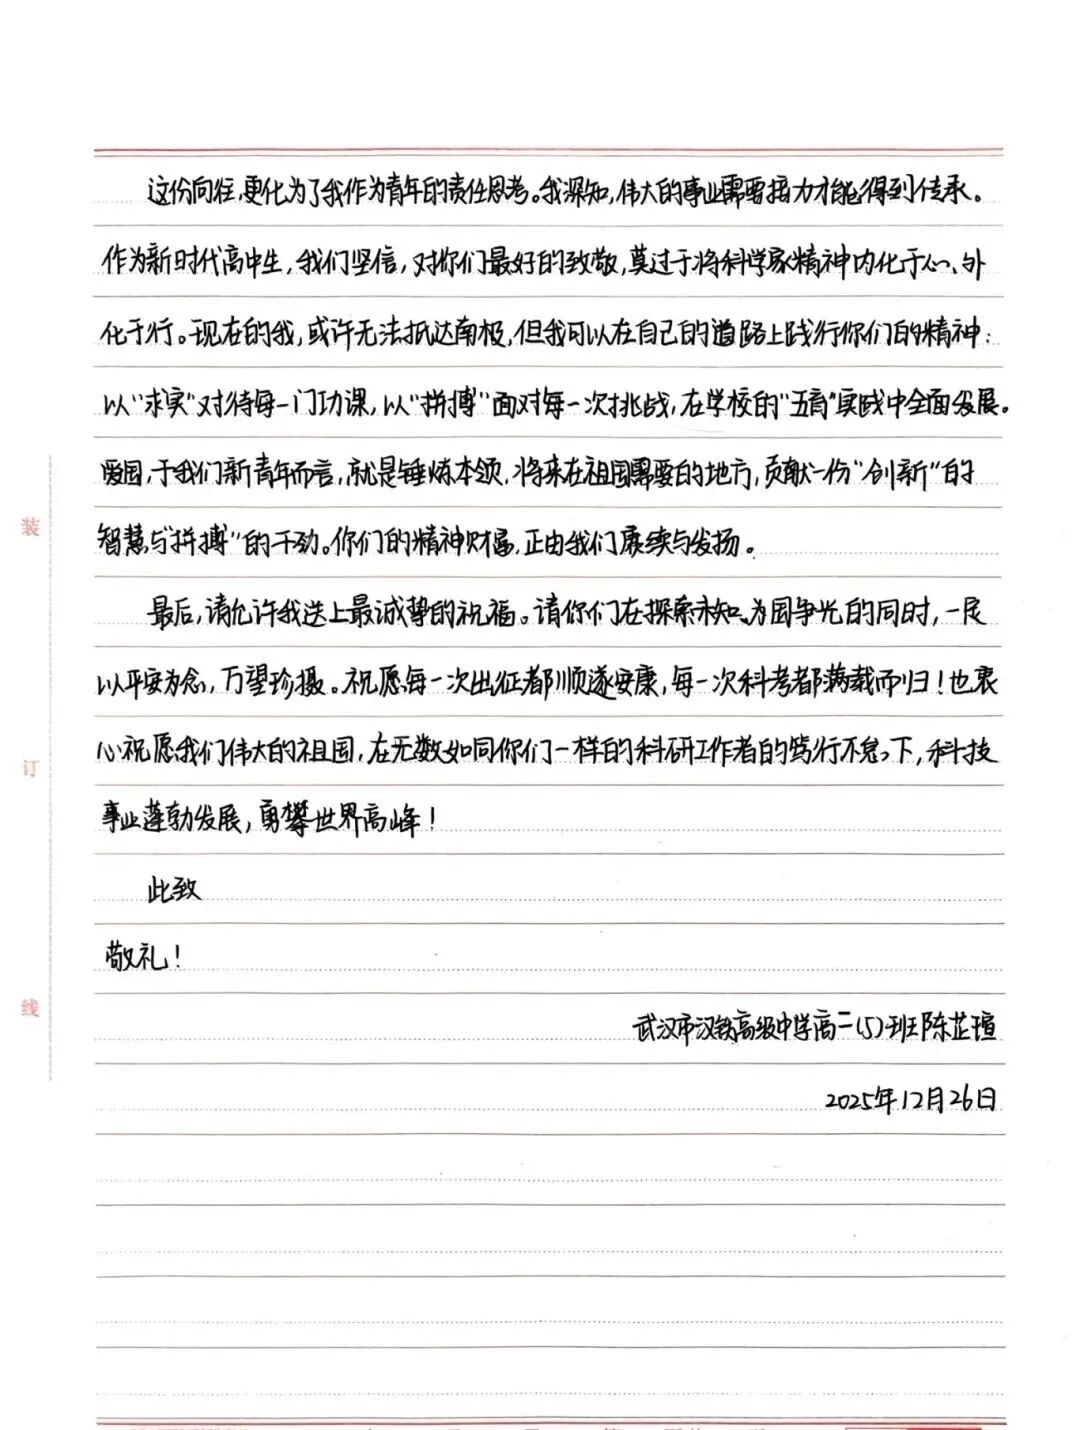 这份向往，更化为了我作为青年的责任思考。我深知，伟大的事业需要接力才能得到传承。
作为新时代高中生，我们坚信，对你们最好的致敬，莫过于将科学家精神内化于心、外
化于行。现在的我，或许无法抵达南极，但我可以在自己的道路上践行你们的精神：
以“求实”对待每一门功课，以“拼搏”面对每一次挑战，在学校的“五育”实践中全面发展。
爱国，于我们新青年而言，就是锤炼本领，将来在祖国需要的地方，贡献一份“创新”的
智慧与“拼搏”的干劲。你们的精神财富，正由我们赓续与发扬。
最后，请允许我送上最诚挚的祝福。请你们在探索未知、为国争光的同时，一定
以平安为念，万望珍摄。祝愿每一次出征都顺遂安康，每一次科考都满载而归！也衷
心祝愿我们伟大的祖国，在无数如同你们一样的科研工作者的笃行不怠之下，科技
事业蓬勃发展，勇攀世界高峰！
此致
敬礼！
武汉市汉铁高级中学高二(5)班陈芷瑄
2025年12月26日
装
订
线